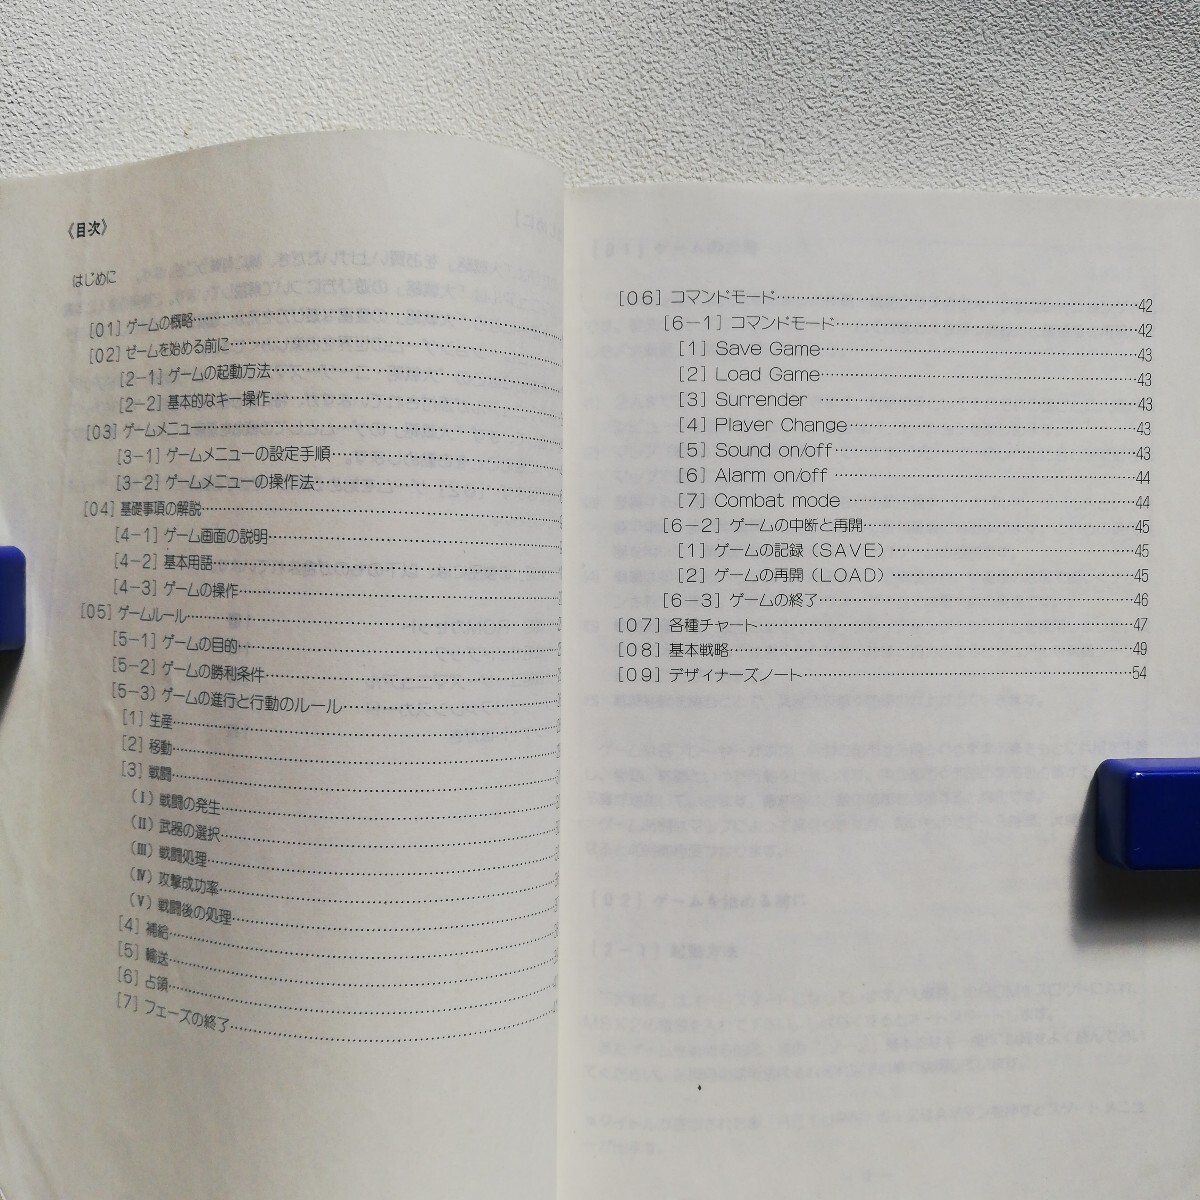 《目次》
はじめに
[01] ゲームの概略
[02] ゼームを始める前に
[2-1] ゲームの起動方法
[2-2] 基本的なキー操作
[03] ゲームメニュー
[3-1] ゲームメニューの設定手順
[3-2] ゲームメニューの操作法
[04] 基礎事項の解説
[4-1] ゲーム画面の説明
[4-2] 基本用語
[4-3] ゲームの操作
[05] ゲームルール
[5-1] ゲームの目的
[5-2] ゲームの勝利条件
[5-3] ゲームの進行と行動のルール
[1] 生産
[2] 移動
[3] 戦闘
(Ⅰ) 戦闘の発生
(Ⅱ) 武器の選択
(Ⅲ) 戦闘処理
(Ⅳ) 攻撃成功率
(Ⅴ) 戦闘後の処理
[4] 補給
[5] 輸送
[6] 占領
[7] フェーズの終了
[06] コマンドモード 42
[6-1] コマンドモード 42
[1] Save Game 43
[2] Load Game 43
[3] Surrender 43
[4] Player Change 43
[5] Sound on/off 43
[6] Alarm on/off 44
[7] Combat mode 44
[6-2] ゲームの中断と再開 45
[1] ゲームの記録（SAVE） 45
[2] ゲームの再開（LOAD） 45
[6-3] ゲームの終了 46
[07] 各種チャート 47
[08] 基本戦略 49
[09] デザイナーズノート 54